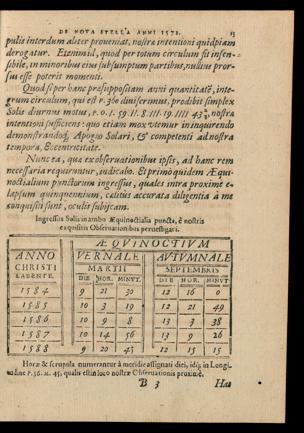 DE NOVA STELLA ANNI 1572. 13
pulis interdum aliter proveniat, nostræ intentioni quidpiam
derogatur. Etenim id, quod per totum circulum fit insen-
sibile, in minoribus eius subsumptum partibus, nullius pror-
sus esse poterit momenti.
Quod si per hanc præsuppositam anni quantitatē, inte-
grum circulum, qui est P. 360 diviserimus, prodibit simplex
Solis diurnus motus, P. 0. I. 59. II. 8. III. 19. IIII. 43, nostræ
intentioni sufficiens: quo etiam mox utemur in inquirendo
demonstrandoq; Apogæo Solari, & competenti ad nostra
tempora, Eccentricitate.
Nunc ea, quæ ex observationibus ipsis, ad hanc rem
necessaria requiruntur, indicabo. Et primò quidem Æqui-
noctialium punctorum ingressus, quales intra proximè e-
lapsum quinquennium, cælitus accurata diligentia à me
conquisiti sunt, oculis subjiciam.
Ingressus Solis in ambo Æquinoctialia puncta, è nostris
exquisitis Observationibus pervestigati.
ÆQVINOCTIVM
ANNO CHRISTI LABENTE. VERNALE AVTVMNALE
MARTII SEPTEMBRIS
DIE HOR. MINVT. DIE HOR. MINVT
1584 9 21 30 12 16 0
1585 10 3 19 12 21 49
1586 10 9 8 13 3 38
1587 10 14 56 13 9 26
1588 9 20 45 12 15 15
Horæ & scrupula numerantur à meridie assignati diei, idq; in Longi-
tudine P. 36. M. 45. qualis est in loco nostræ Observationis proximè.
B 3 Hac